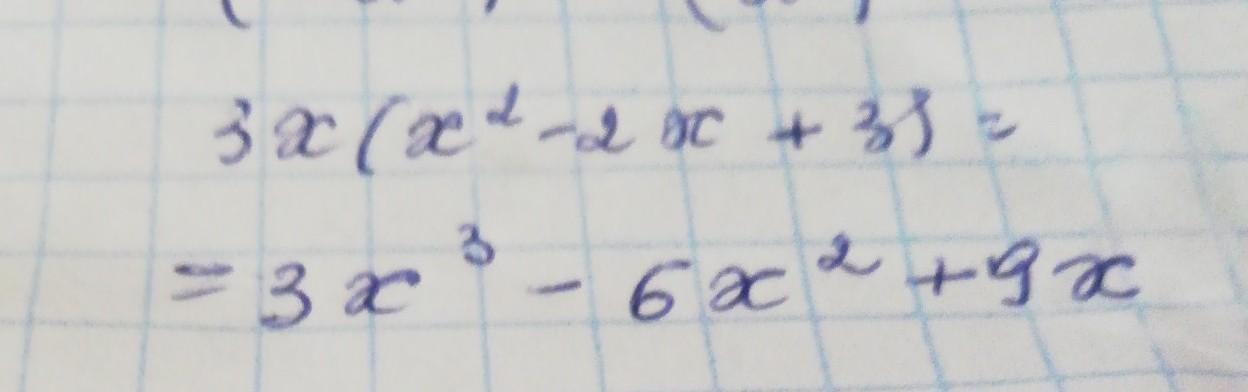 3x(x² - 2x + 3) =
= 3x³ - 6x² + 9x